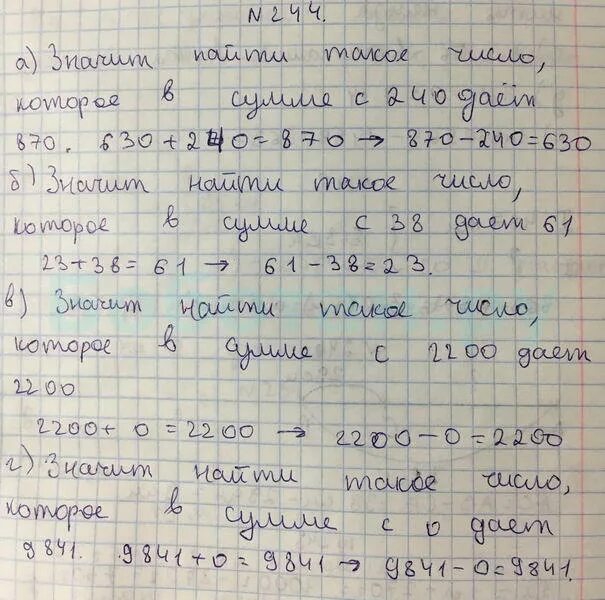 N 244.
а) Значит найти такое число,
которое в сумме с 240 даёт
870. 630 + 240 = 870 → 870 - 240 = 630
б) Значит найти такое число,
которое в сумме с 38 дает 61
23 + 38 = 61 → 61 - 38 = 23.
в) Значит найти такое число,
которое в сумме с 2200 дает
2200
2200 + 0 = 2200 → 2200 - 0 = 2200
г) Значит найти такое число,
которое в сумме с 0 дает
9841. 9841 + 0 = 9841 → 9841 - 0 = 9841.